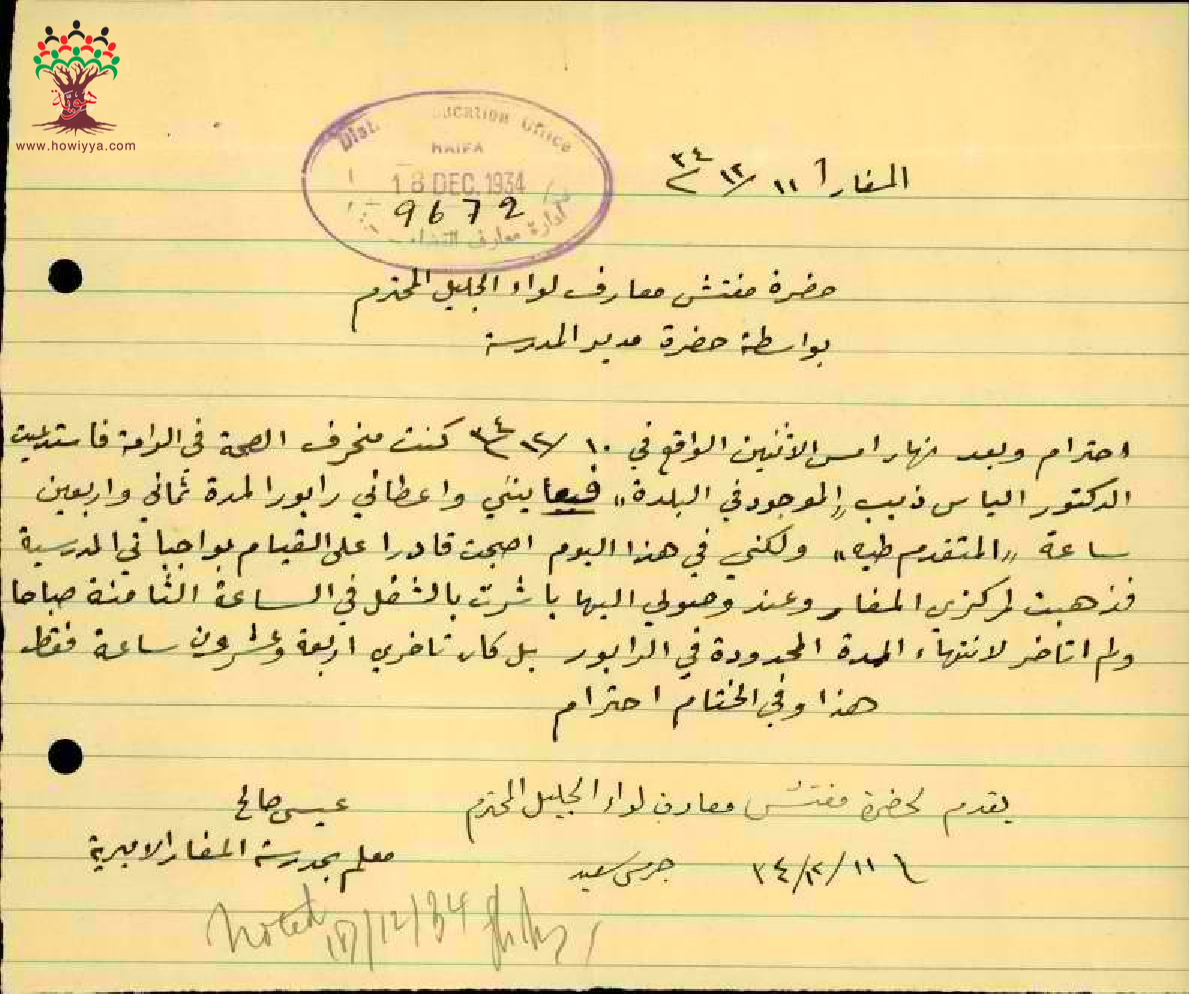 هوية
www.howiyya.com
Education Office
HAIFA
18 DEC. 1934
9672
ادارة معارف
المغار في ١١/١٢/٣٤
حضرة مفتش معارف لواء الجليل المحترم
بواسطة حضرة مدير المدرسة
احترام وبعد نهار امس الاثنين الواقع في ١٠/١٢/٣٤ كنت منحرف الصحة في الرامة فاستدعيت
الدكتور الياس ذيب "الموجود في البلدة" فيعاينني واعطاني رابورا لمدة ثماني واربعين
ساعة "المتقدم طيه" ولكني في هذا اليوم اصبحت قادرا على القيام بواجباتي المدرسية
فذهبت لمركزي المغار وعند وصولي اليها باشرت بالشغل في الساعة الثامنة صباحا
ولم اتاخر لانتهاء المدة المحدودة في الرابور بل كان تاخري اربعة وعشرون ساعة فقط
هذا وفي الختام احترام
يقدم لحضرة مفتش معارف لواء الجليل المحترم
عيسى صالح
معلم بمدرسة المغار الاميرية
١١/١٢/٣٤ جرس سعيد
Noted 18/12/34